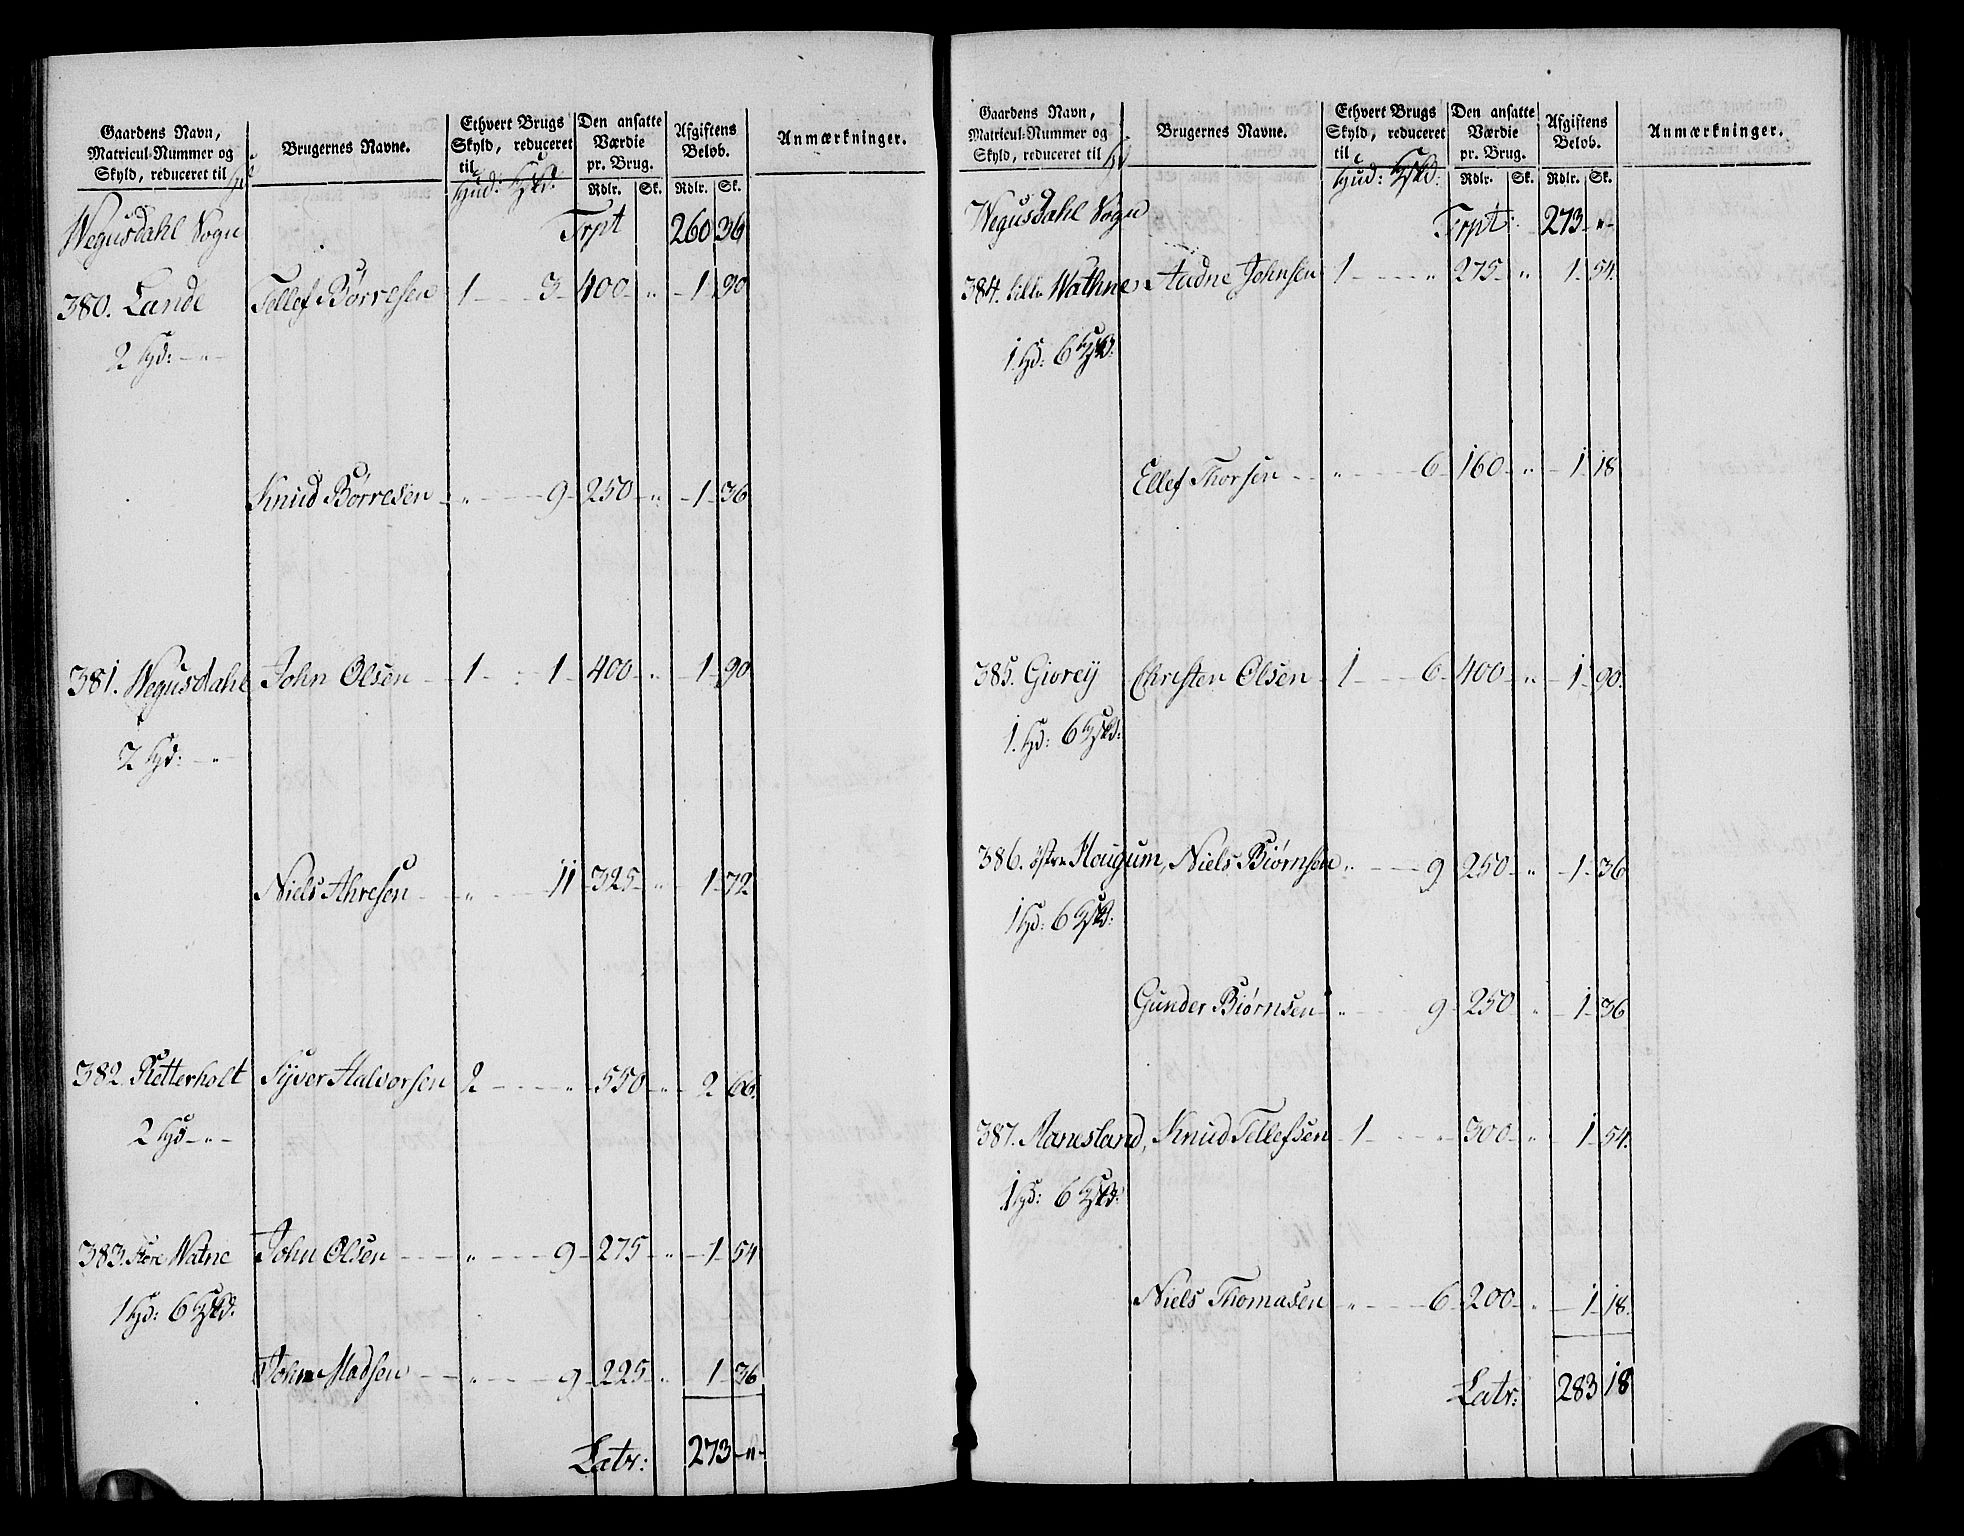 Gaardens Navn,
Matricul-Nummer og
Skyld, reduceret til
Brugernes Navne.
Ethvert Brugs
Skyld, reduceret
til
Hud:
Den ansatte
Værdie
pr. Brug.
Rdlr. Sk.
Afgiftens
Beløb.
Rdlr. Sk.
Anmærkninger.
Wegusdahl Sogn Trpt 260 36
380. Lande Tellef Børresen 1 - - 3 - 400 - " - 1 - 90
2 Hd: - " -
Knud Børresen - " - - 9 - 250 - " - 1 - 36
381. Wegusdahl John Olsen - 1 - - 1 - 400 - " - 1 - 90
2 Hd: - " -
Niels Ahresen - - " - - 11 - 325 - " - 1 - 72
382. Retterholt Syver Halvorsen 2 - - " - 550 - " - 2 66.
2 Hd - " -
383. Store Watne John Olsen - - " - - 9 - 275 - " - 1 - 54
1 Hd: 6
John Madsen - - " - - 9 - 225 - " - 1 - 36
Latr: 273 - " -
Gaardens Navn,
Matricul-Nummer og
Skyld, reduceret til
Brugernes Navne.
Ethvert Brugs
Skyld, reduceret
til
Hud:
Den ansatte
Værdie
pr. Brug.
Rdlr. Sk.
Afgiftens
Beløb.
Rdlr. Sk.
Anmærkninger.
Wegusdahl Sogn Trpt: 273 - " -
384. lille Wathne, Aadne Johnsen 1 - - " - 275 - " - 1 - 54.
1. Hd: 6
Ellef Thorsen - - " - - 6 - 160 - " - 1 - 18
385. Giorey Christen Olsen - 1 - - 6 - 400 - " - 1 - 90.
1. Hd: 6
386. östre Haugum, Niels Biørnsen " - - 9 - 250 - " - 1 - 36
1 Hd: 6
Gunder Biørnsen - " - - 9 - 250 - " - 1 - 36
387. Ranesland, Knud Tellefsen - 1 - - " - 300 - " - 1 - 54.
1 Hd: 6
Niels Thomasen - " - - 6 - 200 - " - 1 - 18.
Latr: 283 18